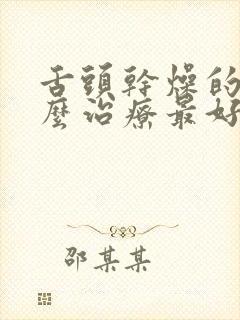 舌頭幹燥的
麼治療最好
邵某某